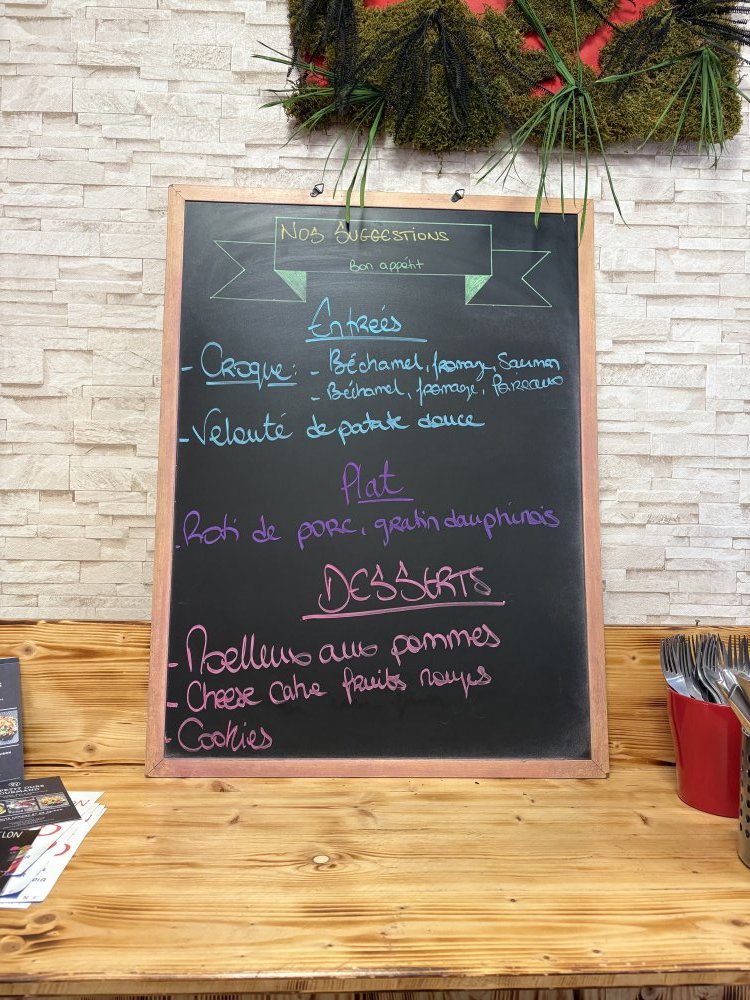 NOS SUGGESTIONS
Bon appétit
Entreés
- CROQUE: - Béchamel, fromage, Saumon
- Béchamel, fromage, Poireaux
- Velouté de patate douce
Plat
. Roti de porc, gratin dauphinois
DESSERTS
- Moelleux aux pommes
- Cheese cake fruits rouges
- Cookies